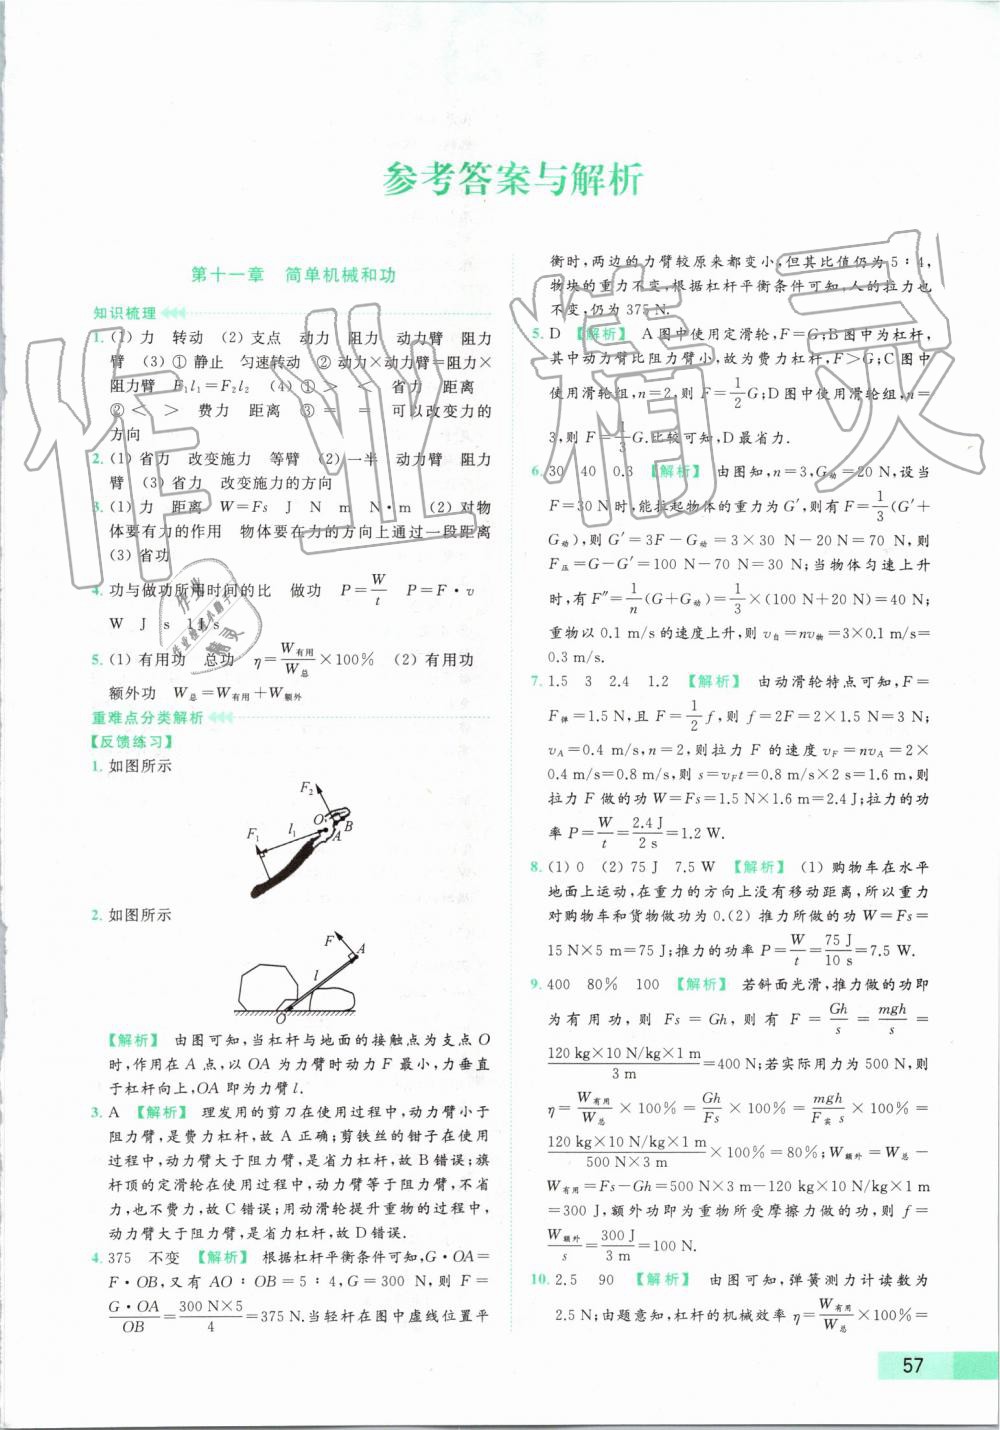 参考答案与解析
第十一章 简单机械和功
知识梳理
1. (1) 力 转动 (2) 支点 动力 阻力 动力臂 阻力
臂 (3) ① 静止 匀速转动 ② 动力×动力臂=阻力×
阻力臂 F₁l₁=F₂l₂ (4) ① > < 省力 距离
② < > 费力 距离 ③ = = 可以改变力的
方向
2. (1) 省力 改变施力 等臂 (2) 一半 动力臂 阻力
臂 (3) 省力 改变施力的方向
3. (1) 力 距离 W=Fs J N m N·m (2) 对物
体要有力的作用 物体要在力的方向上通过一段距离
(3) 省功
4. 功与做功所用时间的比 做功 P=W/t P=F·v
W J s 1J/s
5. (1) 有用功 总功 η=W有用/W总×100% (2) 有用功
额外功 W总=W有用+W额外
重难点分类解析
【反馈练习】
1. 如图所示
F₂
O
B
A
l₁
F₁
2. 如图所示
F
A
l
O
【解析】 由图可知,当杠杆与地面的接触点为支点 O
时,作用在 A 点,以 OA 为力臂时动力 F 最小,力垂直
于杠杆向上,OA 即为力臂 l.
3. A 【解析】 理发用的剪刀在使用过程中,动力臂小于
阻力臂,是费力杠杆,故 A 正确;剪铁丝的钳子在使用
过程中,动力臂大于阻力臂,是省力杠杆,故 B 错误;旗
杆顶的定滑轮在使用过程中,动力臂等于阻力臂,不省
力,也不费力,故 C 错误;用动滑轮提升重物的过程中,
动力臂大于阻力臂,是省力杠杆,故 D 错误.
4. 375 不变 【解析】 根据杠杆平衡条件可知,G·OA=
F·OB,又有 AO∶OB=5∶4,G=300 N,则 F=
G·OA/OB=300 N×5/4=375 N.当轻杆在图中虚线位置平
衡时,两边的力臂较原来都变小,但其比值仍为5∶4,
物块的重力不变,根据杠杆平衡条件可知,人的拉力也
不变,仍为 375 N.
5. D 【解析】 A 图中使用定滑轮,F=G;B 图中为杠杆,
其中动力臂比阻力臂小,故为费力杠杆,F>G;C 图中
使用滑轮组,n=2,则 F=1/2G;D 图中使用滑轮组,n=
3,则 F=1/3G.比较可知,D最省力.
6. 30 40 0.3 【解析】 由图知,n=3,G动=20 N,设当
F=30 N 时,能拉起物体的重力为 G′,则有 F=1/3(G′+
G动),则 G′=3F-G动=3×30 N-20 N=70 N,则
F压=G-G′=100 N-70 N=30 N;当物体匀速上升
时,有 F″=1/n(G+G动)=1/3×(100 N+20 N)=40 N;
重物以 0.1 m/s 的速度上升,则 v自=nv物=3×0.1 m/s=
0.3 m/s.
7. 1.5 3 2.4 1.2 【解析】 由动滑轮特点可知,F=
F弹=1.5 N,且 F=1/2f,则 f=2F=2×1.5 N=3 N;
vA=0.4 m/s,n=2,则拉力 F 的速度 vF=nvA=2×
0.4 m/s=0.8 m/s,则 s=vFt=0.8 m/s×2 s=1.6 m,则
拉力 F 做的功 W=Fs=1.5 N×1.6 m=2.4 J;拉力的功
率 P=W/t=2.4 J/2 s=1.2 W.
8. (1) 0 (2) 75 J 7.5 W 【解析】 (1) 购物车在水平
地面上运动,在重力的方向上没有移动距离,所以重力
对购物车和货物做功为 0.(2) 推力所做的功 W=Fs=
15 N×5 m=75 J;推力的功率 P=W/t=75 J/10 s=7.5 W.
9. 400 80% 100 【解析】 若斜面光滑,推力做的功即
为有用功,则 Fs=Gh,则有 F=Gh/s=mgh/s=
120 kg×10 N/kg×1 m/3 m=400 N;若实际用力为 500 N,则
η=W有用/W总×100%=Gh/Fs×100%=mgh/F实s×100%=
120 kg×10 N/kg×1 m/500 N×3 m×100%=80%;W额外=W总-
W有用=Fs-Gh=500 N×3 m-120 kg×10 N/kg×1 m
=300 J,额外功即为重物所受摩擦力做的功,则 f=
W额外/s=300 J/3 m=100 N.
10. 2.5 90 【解析】 由图可知,弹簧测力计读数为
2.5 N;由题意知,杠杆的机械效率 η=W有用/W总×100%=
57
作业精灵